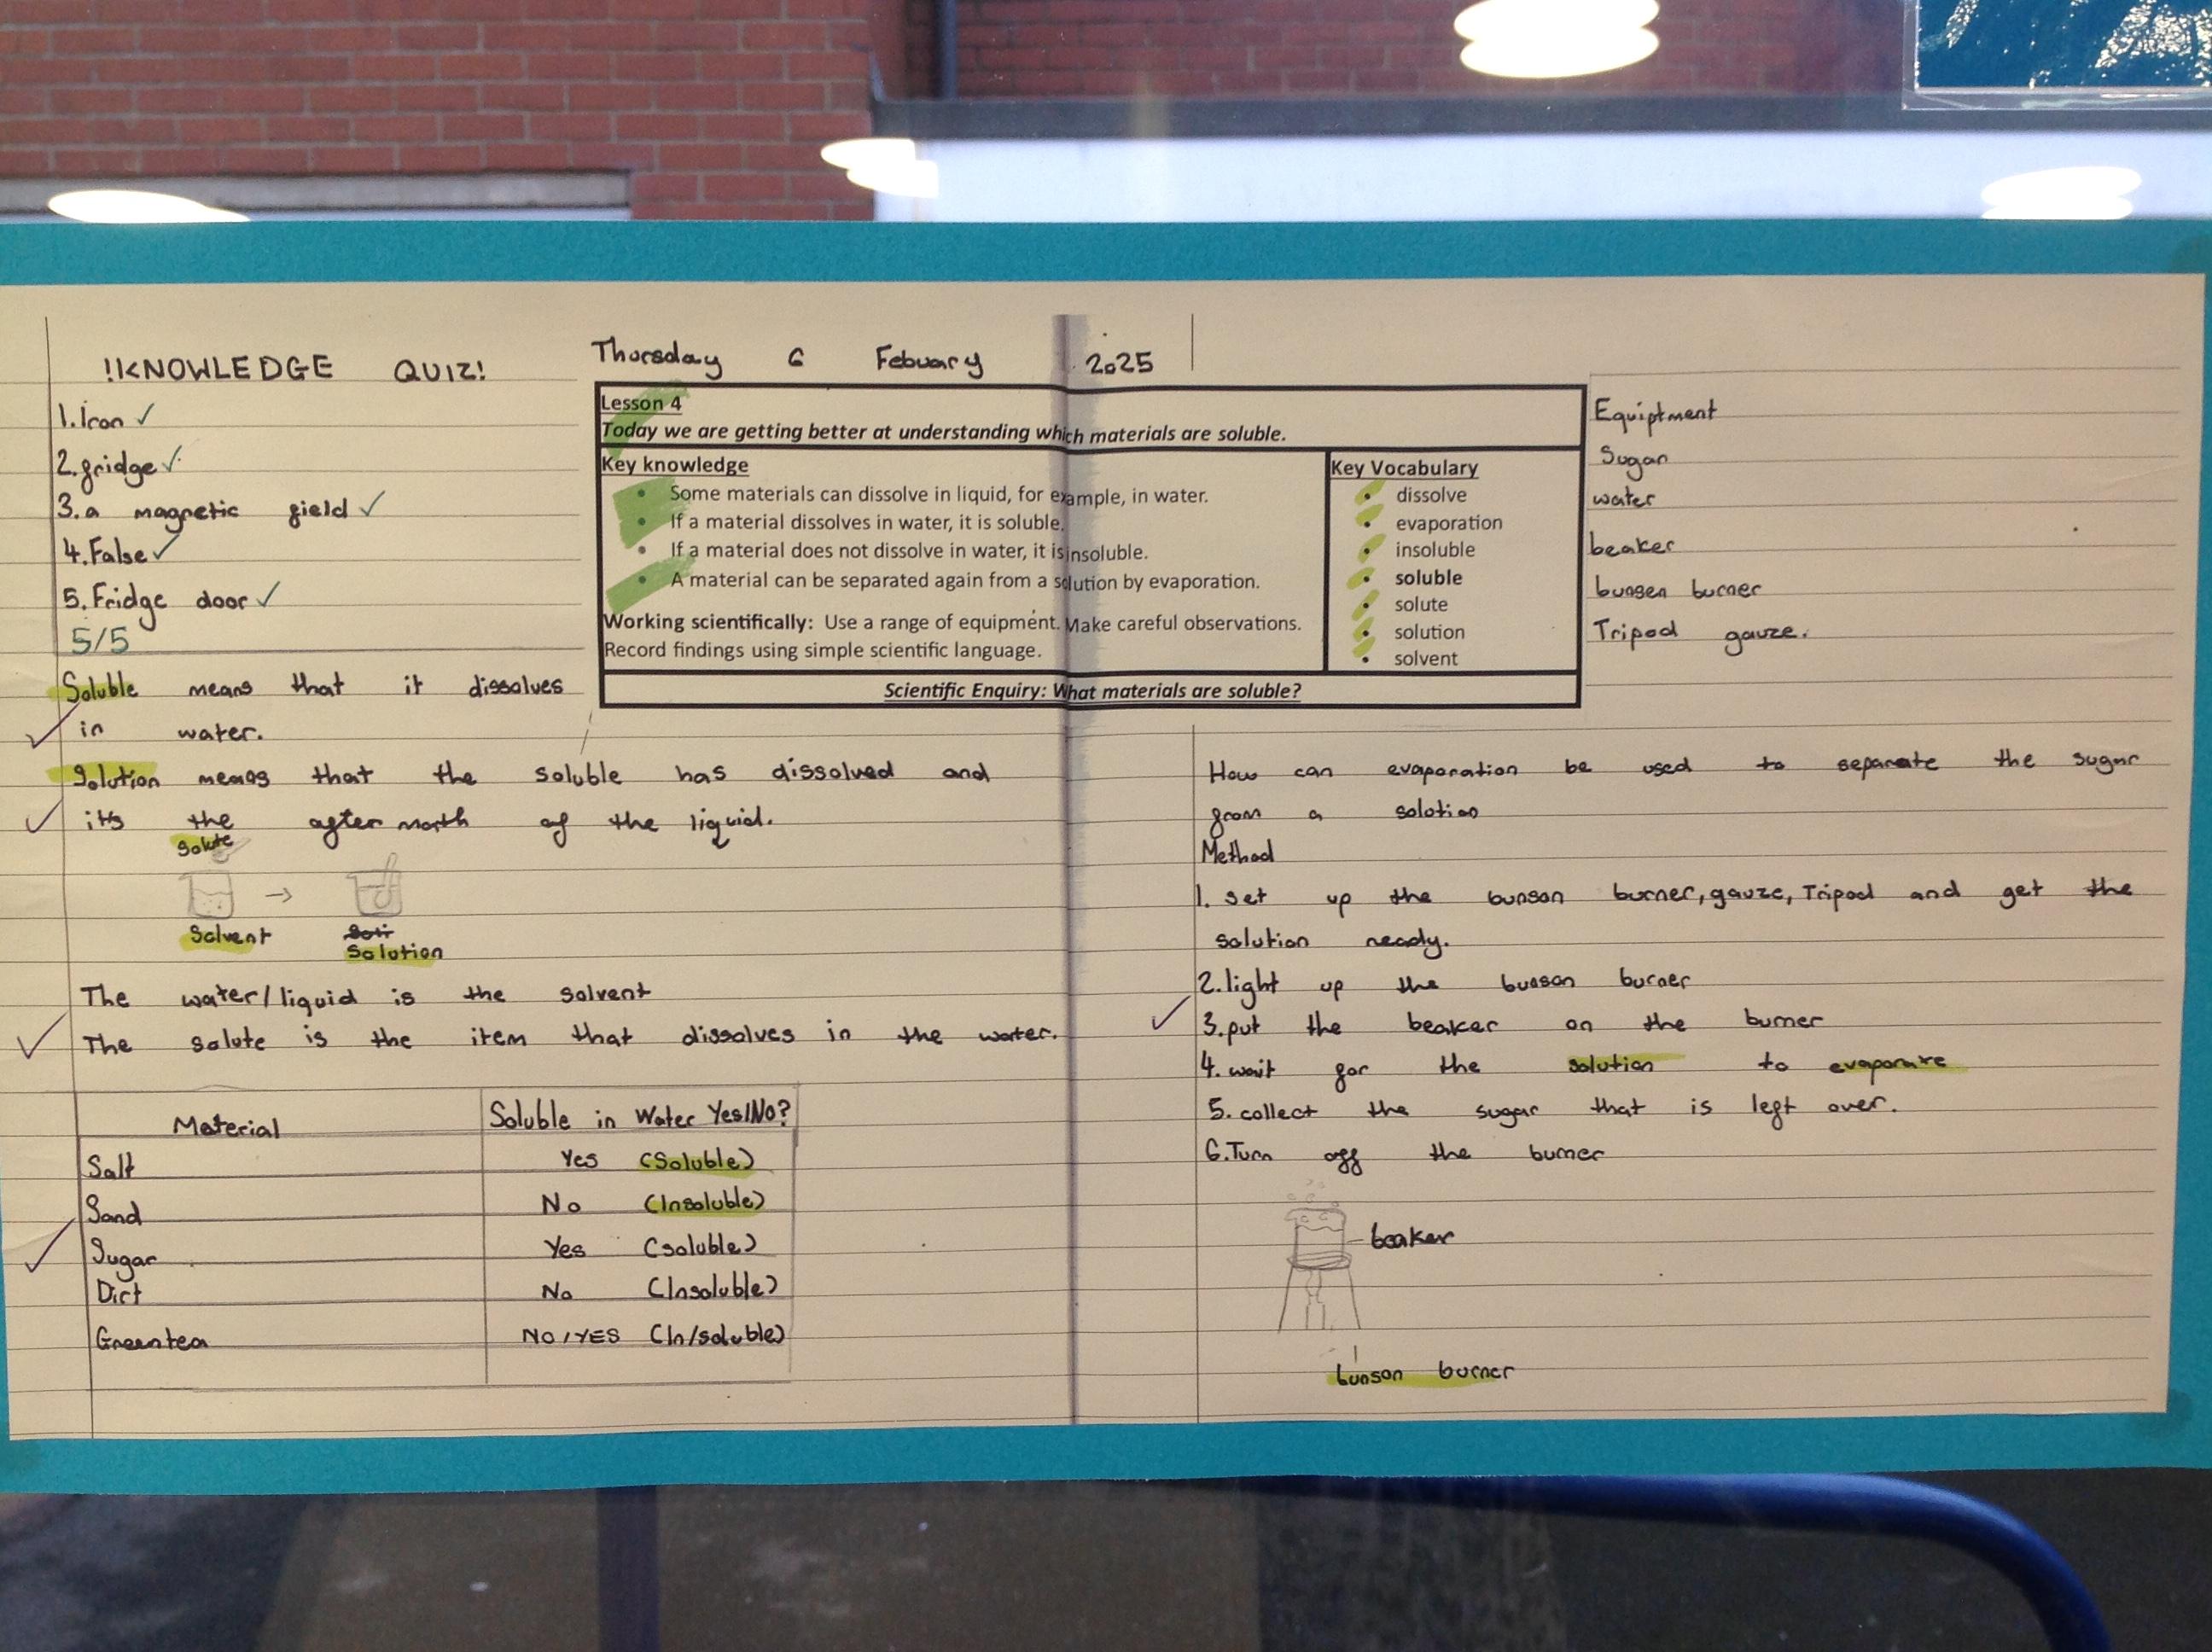 !KNOWLEDGE QUIZ!
1. Iron ✓
2. fridge ✓
3. a magnetic field ✓
4. False ✓
5. Fridge door ✓
5/5
Thursday 6 Febuary 2025
Lesson 4
Today we are getting better at understanding which materials are soluble.
Key knowledge
• Some materials can dissolve in liquid, for example, in water.
• If a material dissolves in water, it is soluble.
• If a material does not dissolve in water, it is insoluble.
• A material can be separated again from a solution by evaporation.
Working scientifically: Use a range of equipment. Make careful observations.
Record findings using simple scientific language.
Key Vocabulary
• dissolve
• evaporation
• insoluble
• soluble
• solute
• solution
• solvent
Scientific Enquiry: What materials are soluble?
Soluble means that it dissolves
in water.
Solution means that the soluble has dissolved and
it's the after math of the liquid.
Solute
Solvent
Solution
The water/liquid is the solvent
The solute is the item that dissolves in the water.
Material Soluble in Water Yes/No?
Salt Yes (Soluble)
Sand No (Insoluble)
Sugar Yes (soluble)
Dirt No (Insoluble)
Greentea NO/YES (In/soluble)
Equiptment
Sugar
water
beaker
bunsen burner
Tripod gauze.
How can evaporation be used to separate the sugar
from a solution
Method
1. set up the bunson burner, gauze, Tripod and get the
solution ready.
2. light up the bunson burner
3. put the beaker on the burner
4. wait for the solution to evaporate
5. collect the sugar that is left over.
6. Turn off the burner
beaker
bunson burner